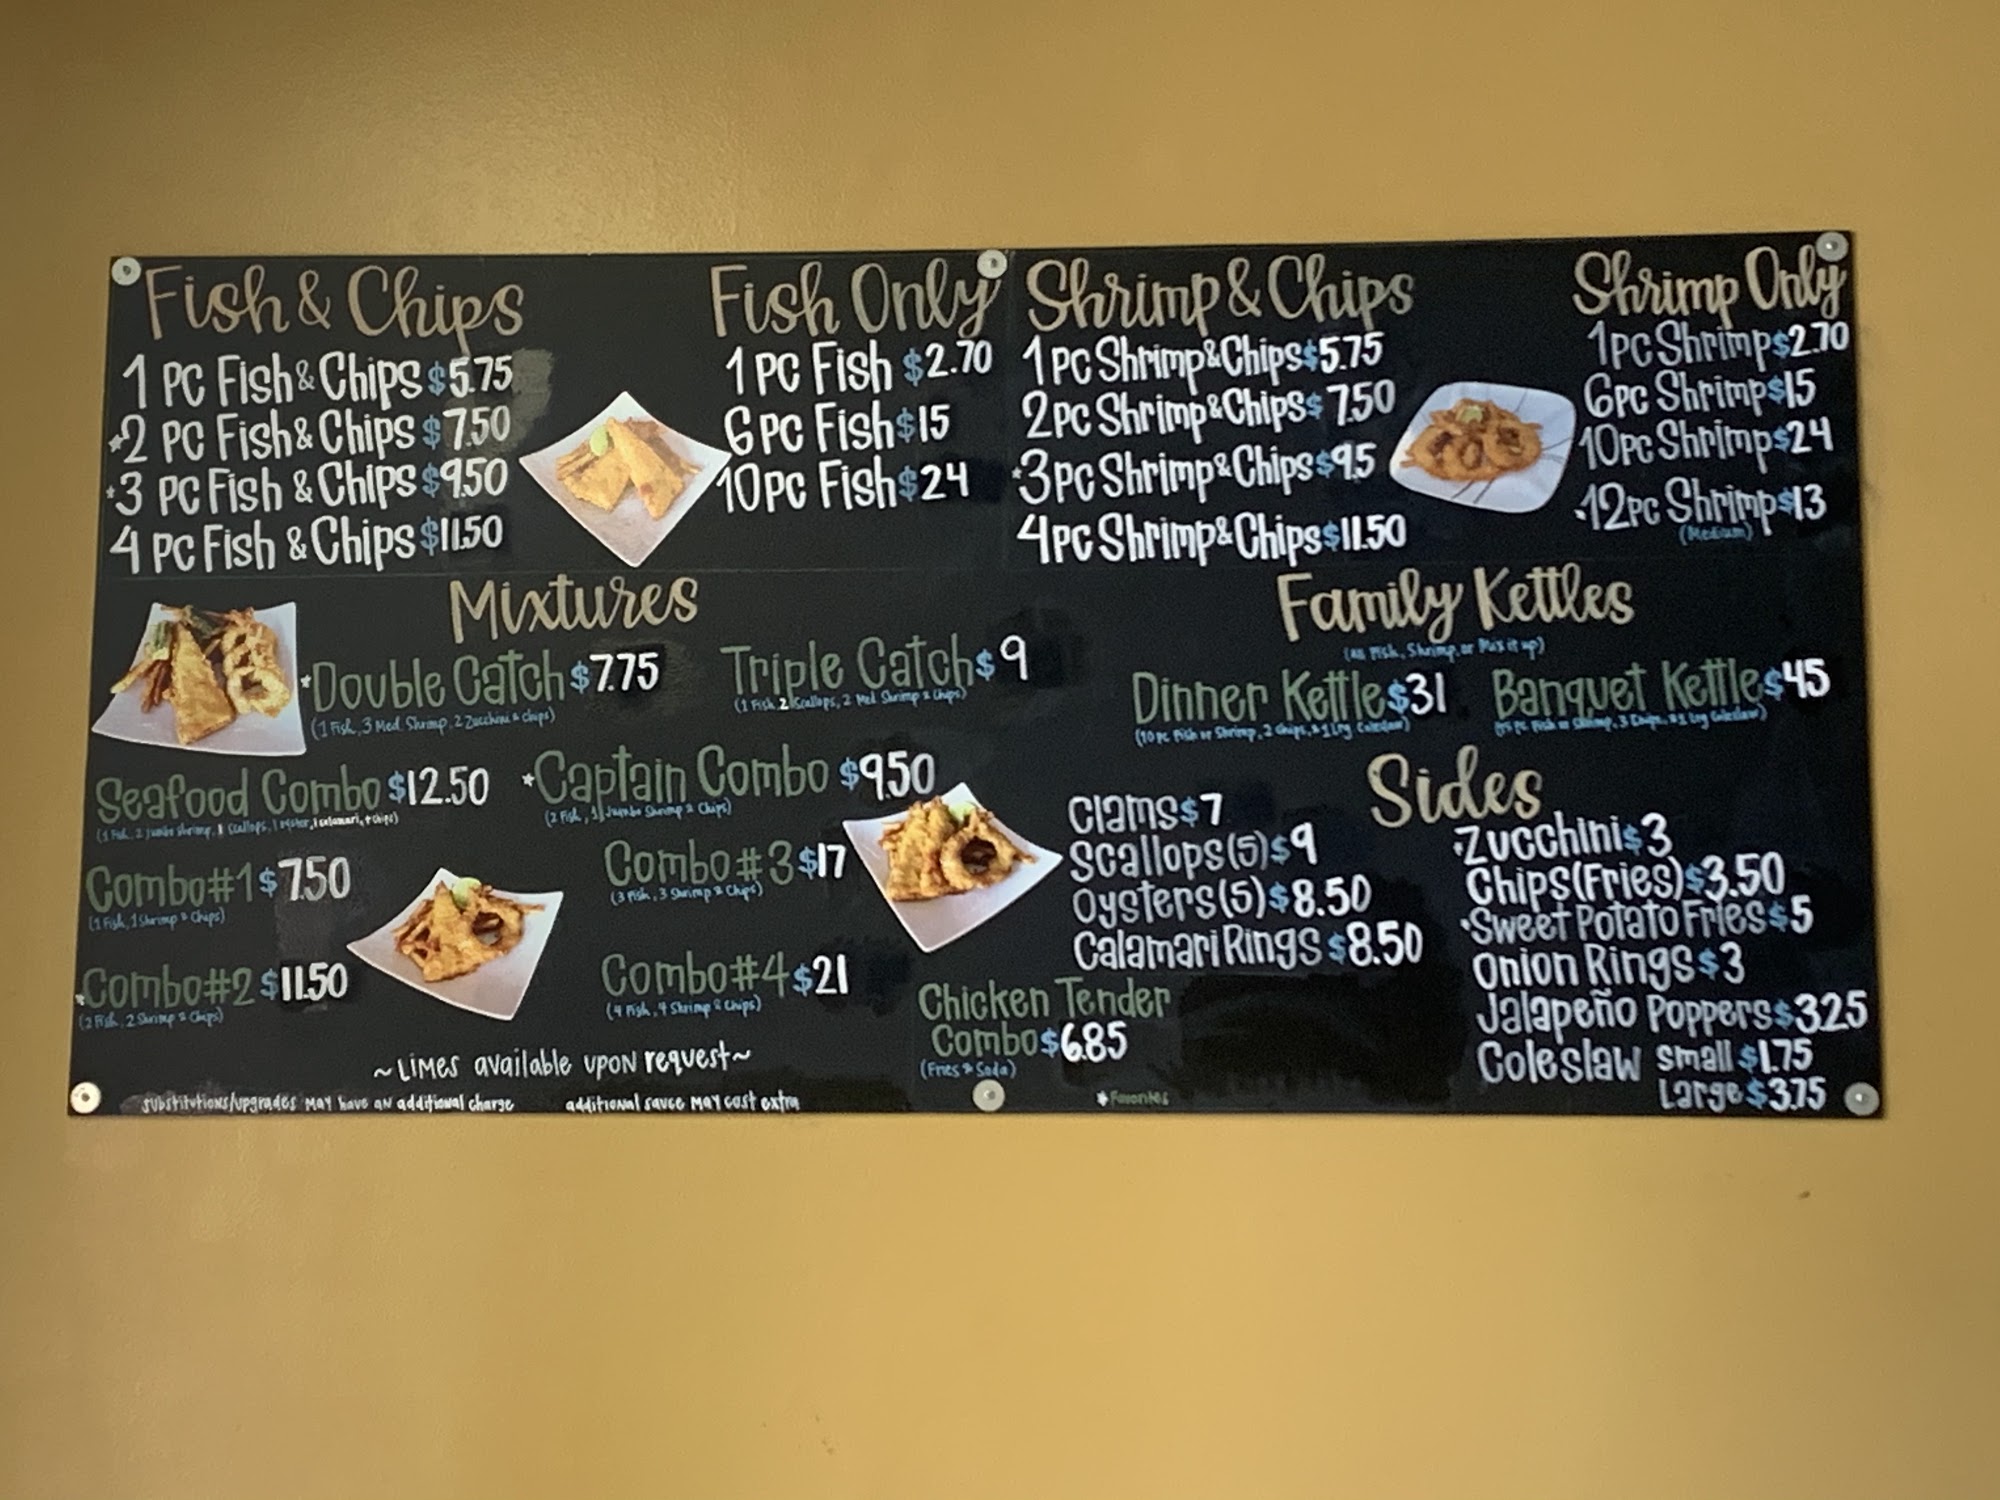 Fish & Chips
1 PC Fish & Chips $5.75
*2 PC Fish & Chips $7.50
*3 PC Fish & Chips $9.50
4 PC Fish & Chips $11.50
Fish Only
1 PC Fish $2.70
6 PC Fish $15
10 PC Fish $24
Shrimp & Chips
1 PC Shrimp & Chips $5.75
2 PC Shrimp & Chips $7.50
*3 PC Shrimp & Chips $9.5
4 PC Shrimp & Chips $11.50
Shrimp Only
1 PC Shrimp $2.70
6 PC Shrimp $15
10 PC Shrimp $24
*12 PC Shrimp $13
(Medium)
Mixtures
*Double Catch $7.75
(1 Fish, 3 Med. Shrimp, 2 Zucchini & Chips)
Triple Catch $9
(1 Fish, 2 Scallops, 2 Med Shrimp & Chips)
Seafood Combo $12.50
(1 Fish, 2 Jumbo Shrimp, Scallops, 1 oyster, 1 calamari, + chips)
*Captain Combo $9.50
(2 Fish, 1 Jumbo Shrimp & Chips)
Combo #1 $7.50
(1 Fish, 1 Shrimp & Chips)
Combo #3 $17
(3 Fish, 3 Shrimp & Chips)
*Combo #2 $11.50
(2 Fish, 2 Shrimp & Chips)
Combo #4 $21
(4 Fish, 4 Shrimp & Chips)
~Limes available upon request~
substitutions/upgrades may have an additional charge
additional sauce may cost extra
Family Kettles
(All Fish, Shrimp, or Mix it up)
Dinner Kettle $31
(10 pc Fish or Shrimp, 2 Chips, & 1 Lrg. Coleslaw)
Banquet Kettle $45
(15 pc Fish or Shrimp, 3 Chips, & 1 Lrg Coleslaw)
Sides
Clams $7
Scallops (5) $9
Oysters (5) $8.50
Calamari Rings $8.50
*Zucchini $3
Chips (Fries) $3.50
*Sweet Potato Fries $5
Onion Rings $3
Jalapeño Poppers $3.25
Coleslaw small $1.75
Large $3.75
Chicken Tender
Combo $6.85
(Fries & Soda)
*Favorites